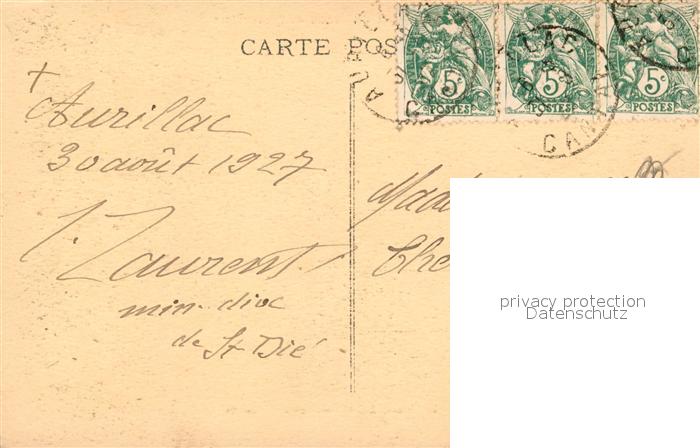 CARTE POS
5c 5c 5c
POSTES POSTES POSTES
CANTAL
+
Aurillac
30 août 1927
J. Laurent
min. dioc
de St Dié
Mad
Che
privacy protection
Datenschutz